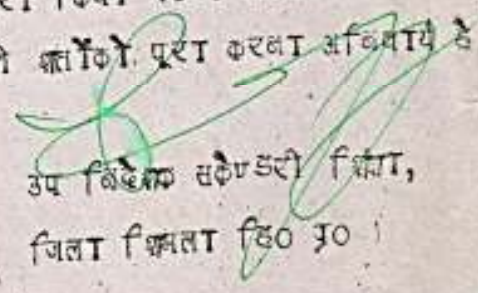 शर्तों को पूरा करना अनिवार्य है
उप निदेशक सकेण्डरी शिक्षा,
जिला शिमला हि0 प्र0 ।